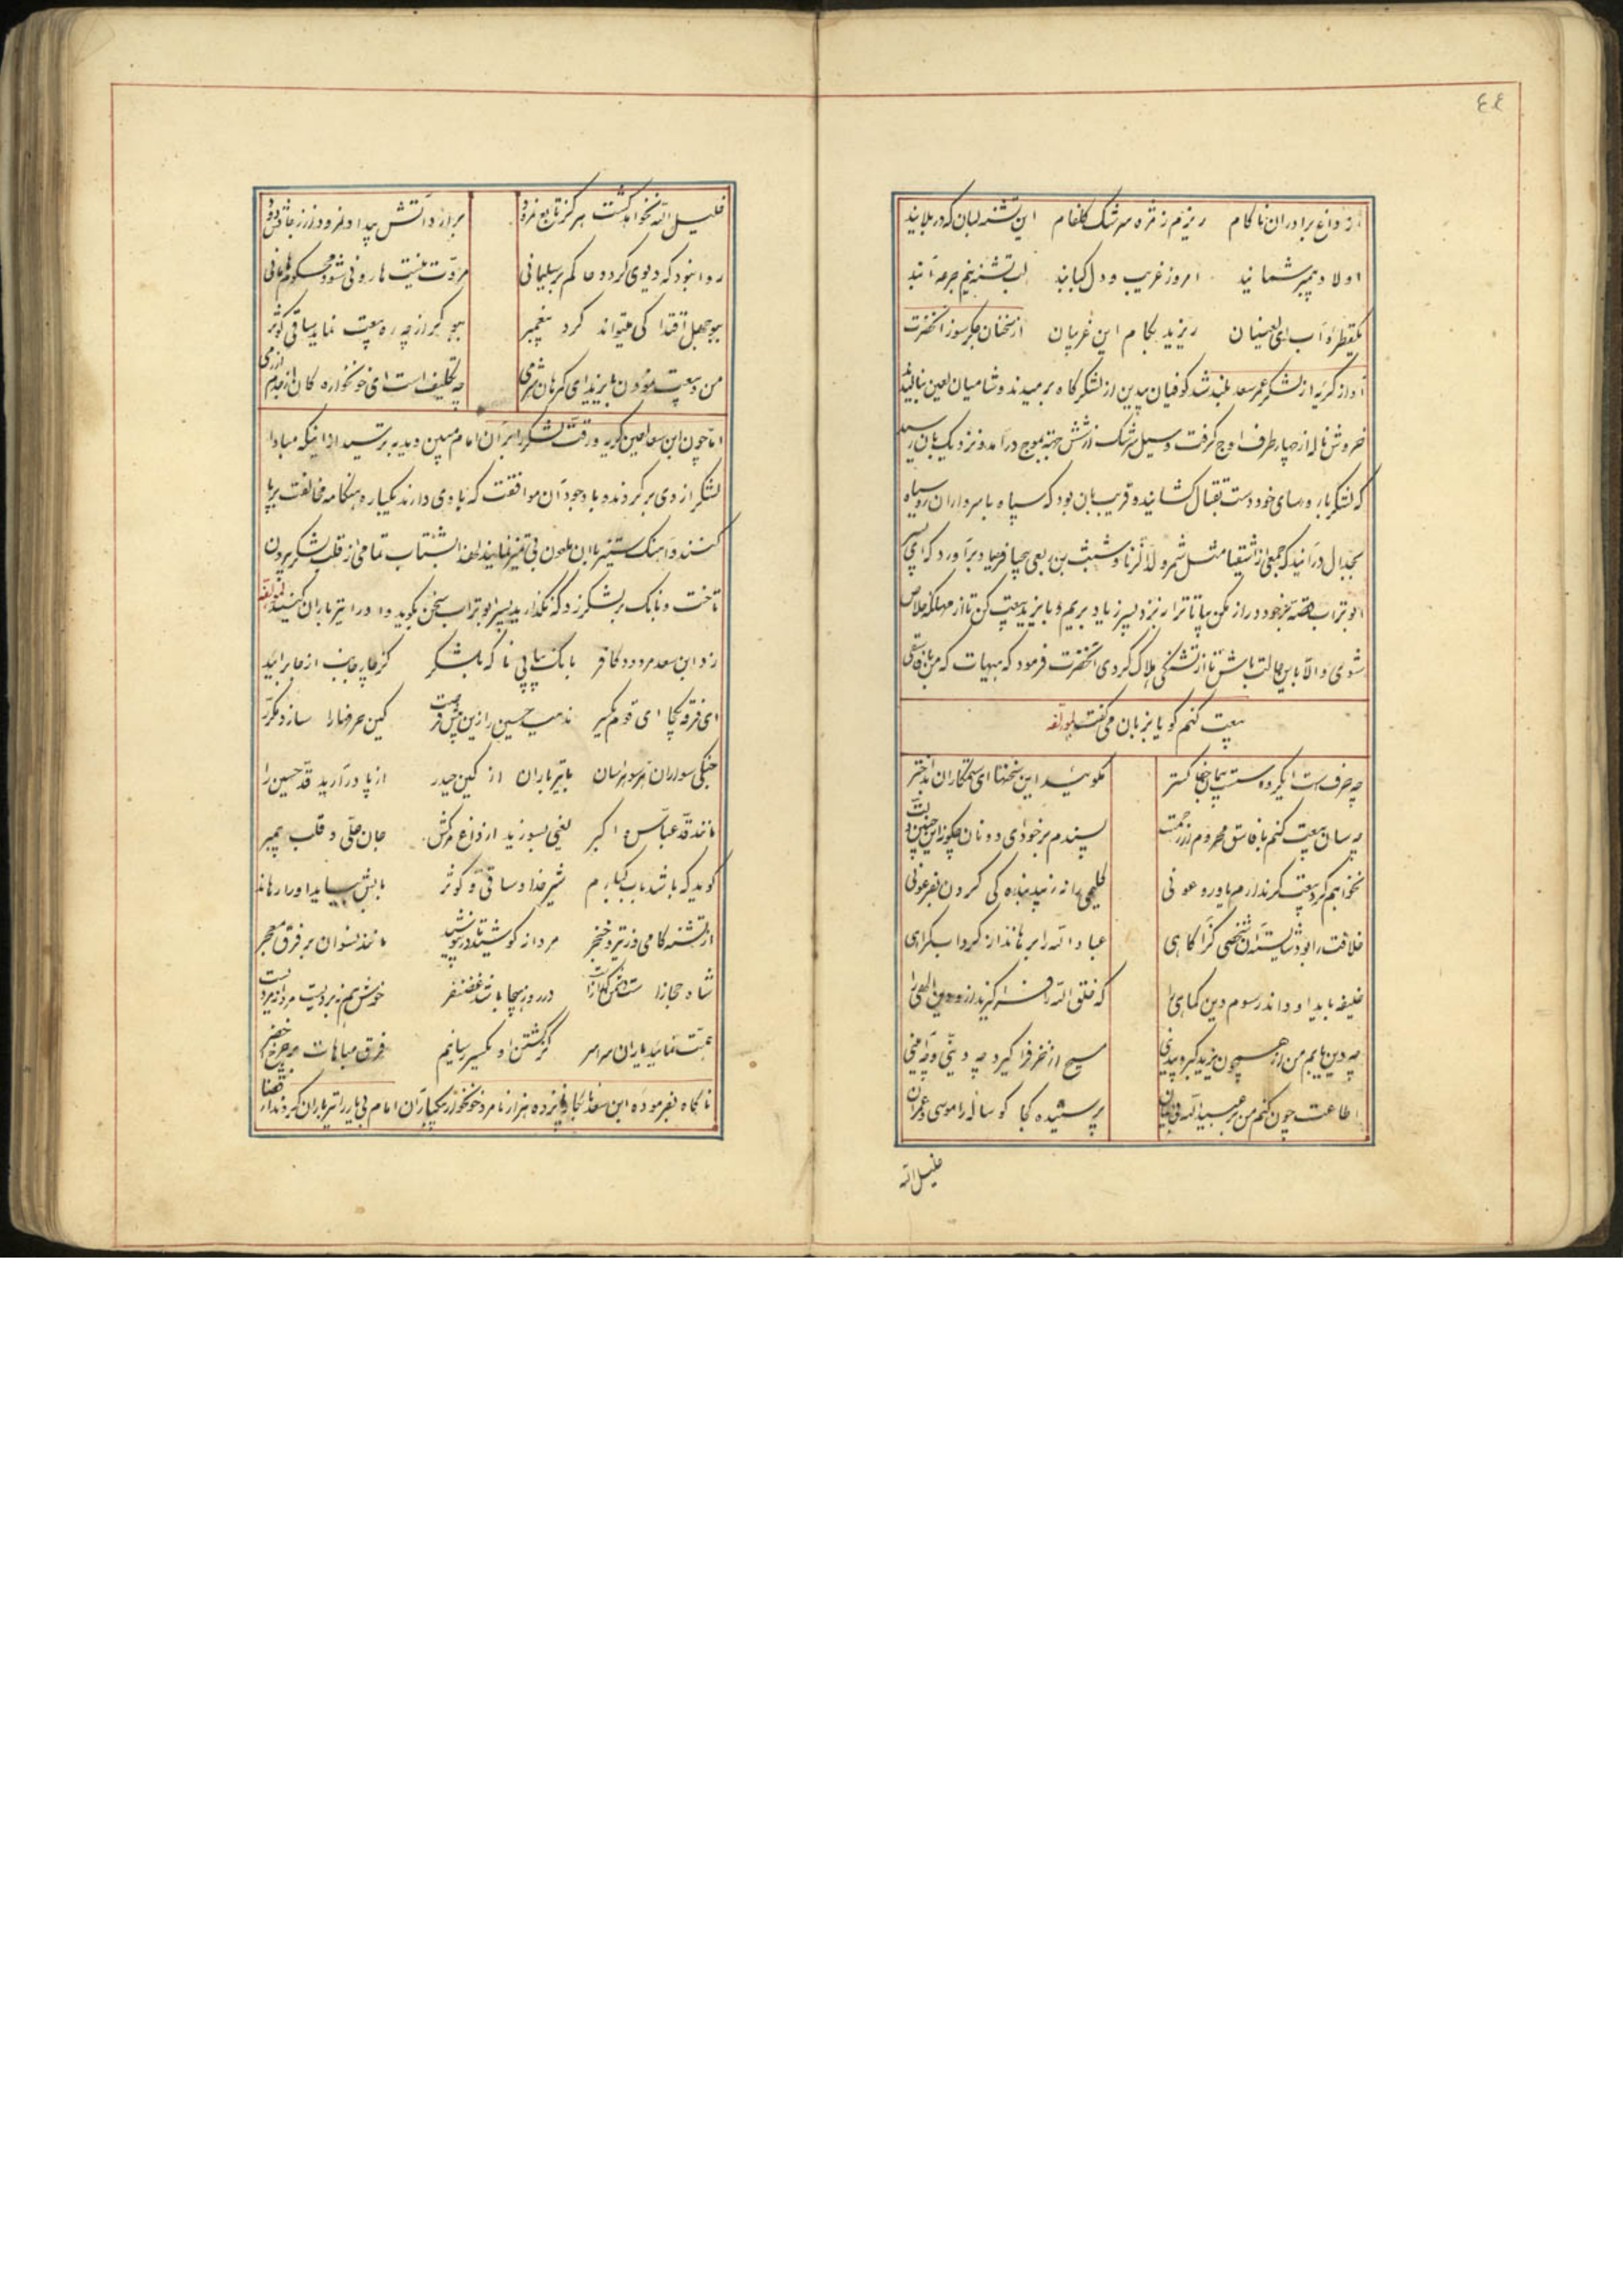 ٤٤
از داغ برادران ناکام ریزم ز مژه سرشک گلفام این تشنه لبان که در بلایند
اولاد پیمبر شمایند امروز غریب و دل کبابند لب تشنه نیم جرعه آبند
یکقطره آب ای لعینان ریزید بکام این غریبان از سخنان جگرسوز آنحضرت
آواز گریه از لشکر عمر سعد بلند شد کوفیان بیدین از لشکرگاه برمیدند و شامیان لعین بنالیدند
خروش ناله از چهار طرف اوج گرفت و سیل سرشک از شش جهة بموج درآمد و نزدیک بآن رسید
که لشکر با روسای خود دست بقتال گشانیده و قریب بآن بود که سپاه با سرداران روسیاه
بجدال درآنید که جمعی از اشقیا مثل شمر ولدالزنا و شبث بن ربعی بیحیا فریاد برآورد که ای پسر
ابوتراب قصه بر خود دراز مکن بیا تا ترا نزد پسر زیاد بریم و با یزید بیعت کن تا از مهلکه خلاص
شوی و الا باین حالت باش تا از تشنگی هلاک گردی آنحضرت فرمود که هیهات که من با فاسقی
بیعت کنم گویا بزبان می گفت لمولفه
چه حرفست ایگروه سست پیمان جفا گستر مگویید این سخنها ای ستمکاران بداختر
چه سان بیعت کنم با فاسق محروم از رحمت پسندم بر خود ای دونان چگونه این چنین ذلت
نخواهم کرد بیعت گر ندارم یاور و عونی کلیمی را نزیبد بنده کی کردن بفرعونی
خلافت را بود شایسته آن شخصی کز آگاهی عبادالله را برهاند از گرداب گمراهی
خلیفه باید او داند رسوم دین کماهی را که خلق الله
چه دین یابم من از همچون یزید گبر و بیدینی مسیح از خر فرا گیرد چه دینی و چه آیینی
اطاعت چون کنم من بر عبیدالله پرستیده کجا گوساله را موسی عمران
خلیل الله
خلیل الله نخواهد گشت هرگز تابع نمرود برآرد آتش بیداد نمرود ار ز جانش دود
روا نبود که دیوی گردد حاکم بر سلیمانی مروت نیست هارونی شود محکوم هامانی
ببوجهل اقتدا کی میتواند کرد پیغمبر ببوبکر از چه ره بیعت نماید ساقی کوثر
من و بیعت نمودن با یزید ای گمرهان شرمی چه تکلیف است ای خونخواره گان از مردم آزرمی
اما چون ابن سعد لعین گریه و رقت لشکر را بر آن امام مبین دید بترسید از اینکه مبادا
لشکر از وی برگردند و با وجود آن موافقت که با وی دارند یکباره هنگامه مخالفت برپا
کنند و آهنگ ستیز با آن ملعون بی تمیز نمایند لهذا بشتاب تمامی از قلب لشکر بیرون
تاخت و بانگ بر لشکر زد که نگذارید پسر ابوتراب سخن بگوید و او را تیرباران کنید لمولفه
زد ابن سعد مردود کافر بانگ پیاپی ناگه بلشکر کز چار جانب از جا برآیید
ای فرقه یکجا ای قوم یکسر ندهید حسین را زین بیش فرصت کین حرفها را سازد مکرر
جنگی سواران با تیرباران از کین حیدر از پا درآرید قد حسین را
مانند قد عباس و اکبر یعنی بسوزید از داغ مرگش جان علی و قلب پیمبر
گوید که باشد باب کبارم شیر خدا و ساقی کوثر بابش بیاید او را رهاند
از تشنه کامی وز تیر و خنجر مانند نسوان بر فرق معجر
شاه حجازا در روز هیجا باشد غضنفر
همت نمایید یاران سراسر کز کشتن او یکسر رسانیم فرق مباهات بر چرخ اخضر
ناگاه بفرموده ابن سعد نابکار پانزده هزار نامرد خونخوار یکبار آن امام بی یار را تیرباران کردند از قضا